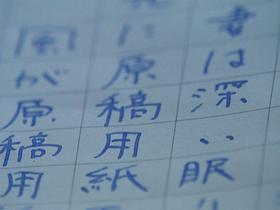 書は深い眠
に原稿用紙
風が原稿用